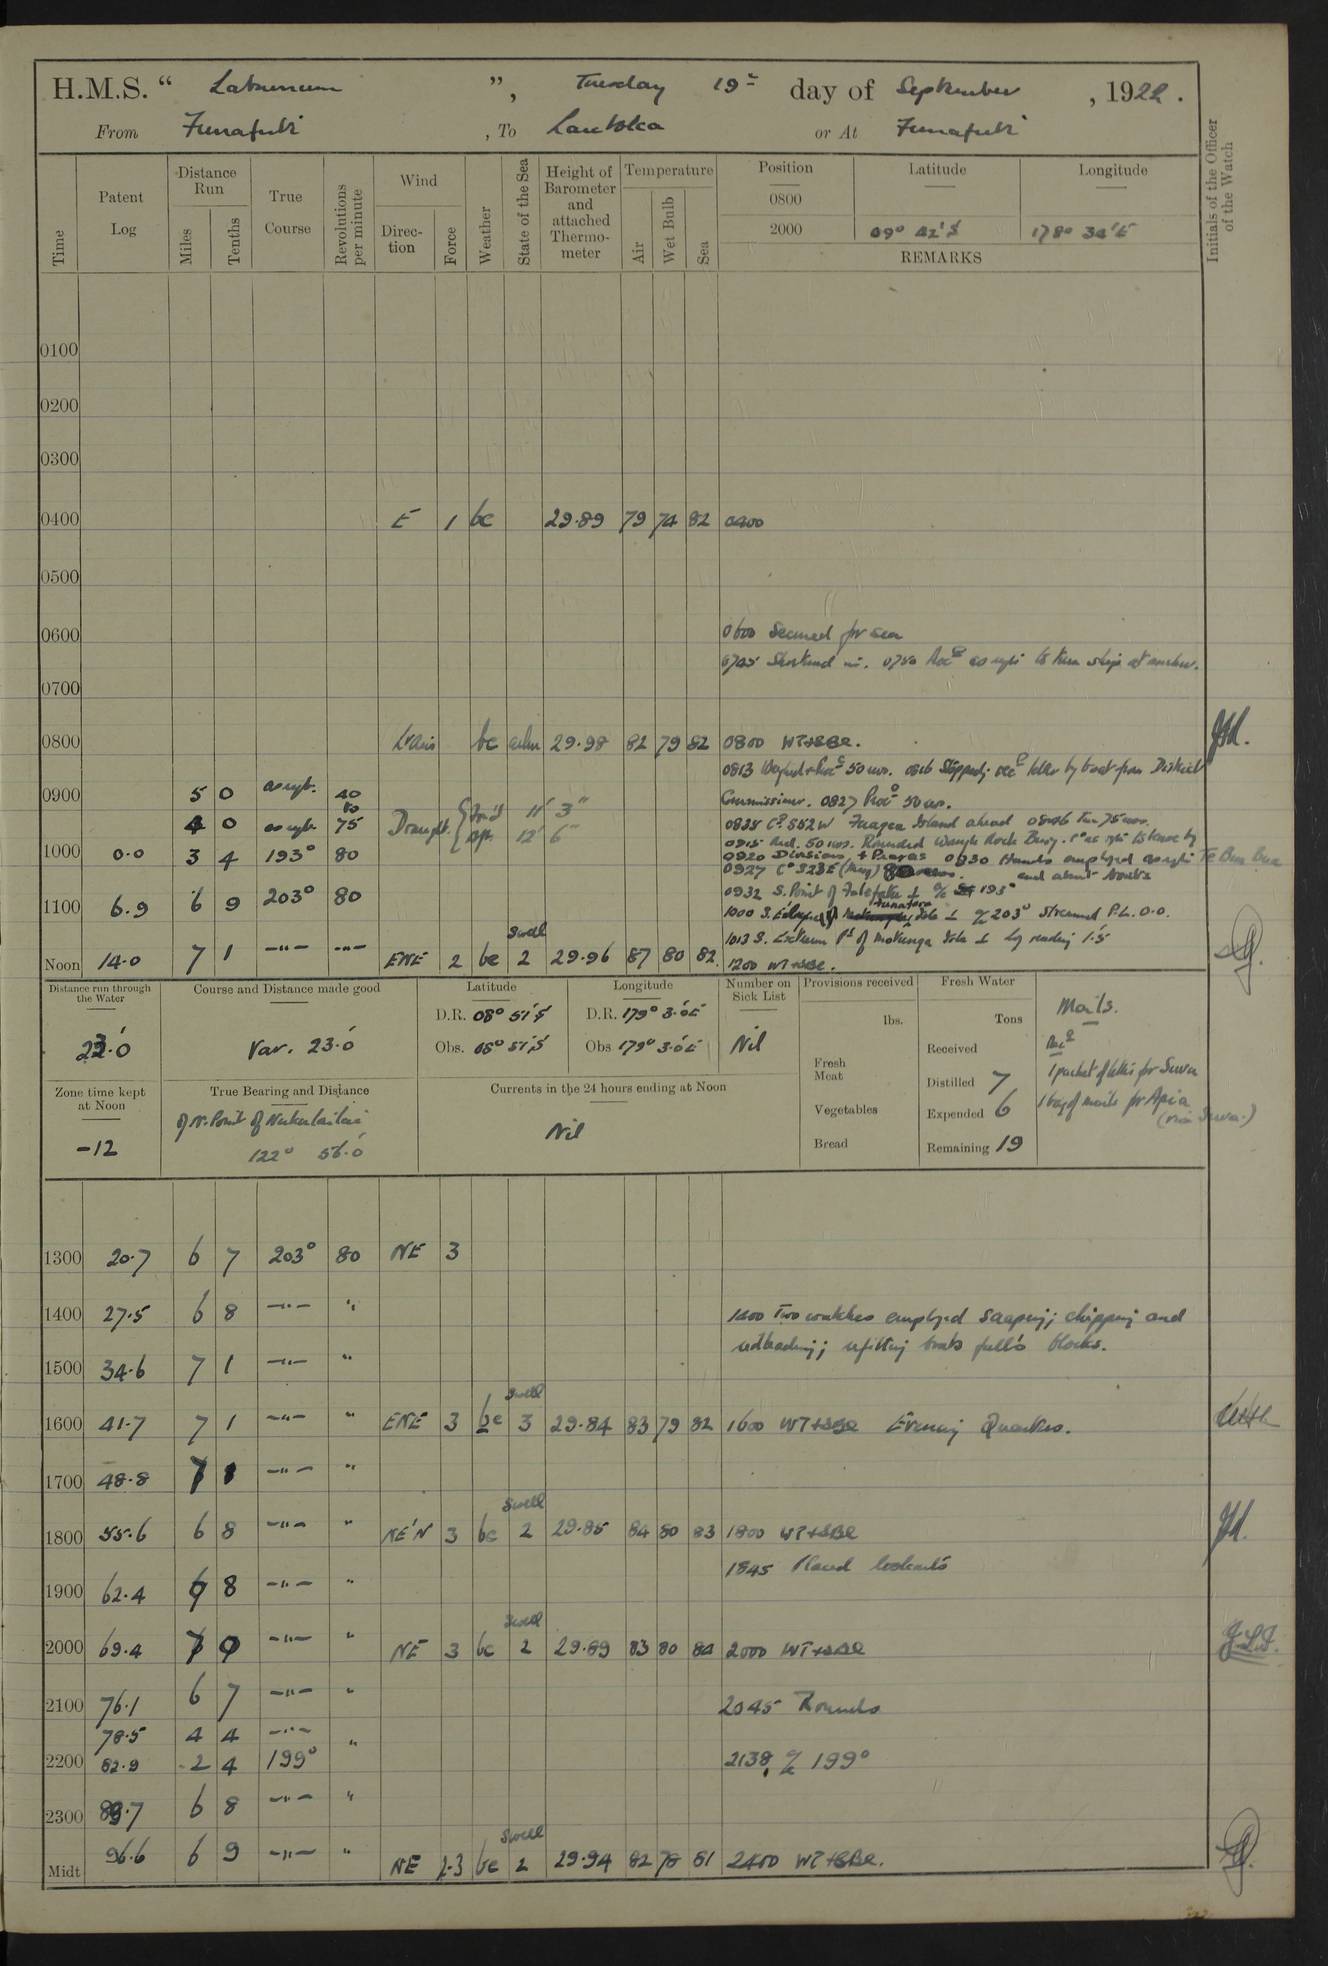 H.M.S. “ Laburnum ”, Tuesday 19th day of September , 1922.
From Funafuti , To Lautoka or At Funafuti
Time
Patent Log
Distance Run
Miles
Tenths
True Course
Revolutions per minute
Wind
Direction
Force
Weather
State of the Sea
Height of Barometer and attached Thermometer
Temperature
Air
Wet Bulb
Sea
Position Latitude Longitude
0800
2000 09° 42' S 178° 34' E
REMARKS
Initials of the Officer of the Watch
0100
0200
0300
0400 E 1 bc 29.89 79 74 82 0400
0500
0600 0600 Secured for sea
0745 Shortened in. 0750 Proc as req to turn ship at anchor.
0700
0800 Lt airs bc calm 29.98 82 79 82 0800 WT+SBE.
0813 Weighed + Proc 50 revs. 0816 Stopped; rec letter by boat from District
0900 5 0 as reqt. 40 Commissioner. 0827 Proc 50 revs.
to
4 0 as reqt. 75 Draught. { For'd 11' 3" 0828 Co S52W Fuagea Island ahead 0846 Inc 75 revs.
Aft. 12' 6"
0915 Red. 50 revs. Rounded Waugh Rock Buoy. Co as req to leave by Te Bua Bua
1000 0.0 3 4 193° 80 0920 Divisions, + Prayers 0930 Hands employed as req
0927 Co S23E (Mag) and about boats
0932 S. Point of Falefatu ⊥ a/c 193°
1100 6.9 6 9 203° 80 1000 S. Funafara Isle ⊥ a/c 203° Streamed P.L. 0.0.
1013 S. Extreme Pt of Motungia Isle ⊥ Log reading 1.5
swell
Noon 14.0 7 1 —"— —"— ENE 2 bc 2 29.96 87 80 82 1200 WT+SBE.
Distance run through the Water
23.0
Course and Distance made good
Var. 23.0
Latitude
D.R. 08° 51' S
Obs. 08° 51' S
Longitude
D.R. 179° 3.0 E
Obs 179° 3.0 E
Number on Sick List
Nil
Provisions received
lbs.
Fresh Meat
Vegetables
Bread
Fresh Water
Tons
Received
Distilled 7
Expended 6
Remaining 19
Mails.
Recd
1 packet of letters for Suva
1 bag of mails for Apia
(via Suva.)
Zone time kept at Noon
-12
True Bearing and Distance
of N. Point of Nukulailai
122° 56.0
Currents in the 24 hours ending at Noon
Nil
1300 20.7 6 7 203° 80 NE 3
1400 27.5 6 8 —"— " 1400 Two watches employed scraping; chipping and
redleading; refitting boats falls blocks.
1500 34.6 7 1 —"— "
swell
1600 41.7 7 1 —"— " ENE 3 bc 3 29.84 83 79 82 1600 WT+SBE Evening Quarters.
1700 48.8 7 1 —"— "
swell
1800 55.6 6 8 —"— " NE'N 3 bc 2 29.85 84 80 83 1800 WT+SBE
1845 Placed lookouts
1900 62.4 6 8 —"— "
swell
2000 69.4 7 0 —"— " NE 3 bc 2 29.89 83 80 84 2000 WT+SBE
2100 76.1 6 7 —"— " 2045 Rounds
78.5 4 4 —"—
2200 82.9 2 4 199° " 2138 a/c 199°
2300 89.7 6 8 —"— "
swell
Midt 96.6 6 9 —"— " NE 2-3 bc 2 29.94 82 78 81 2400 WT+SBE.